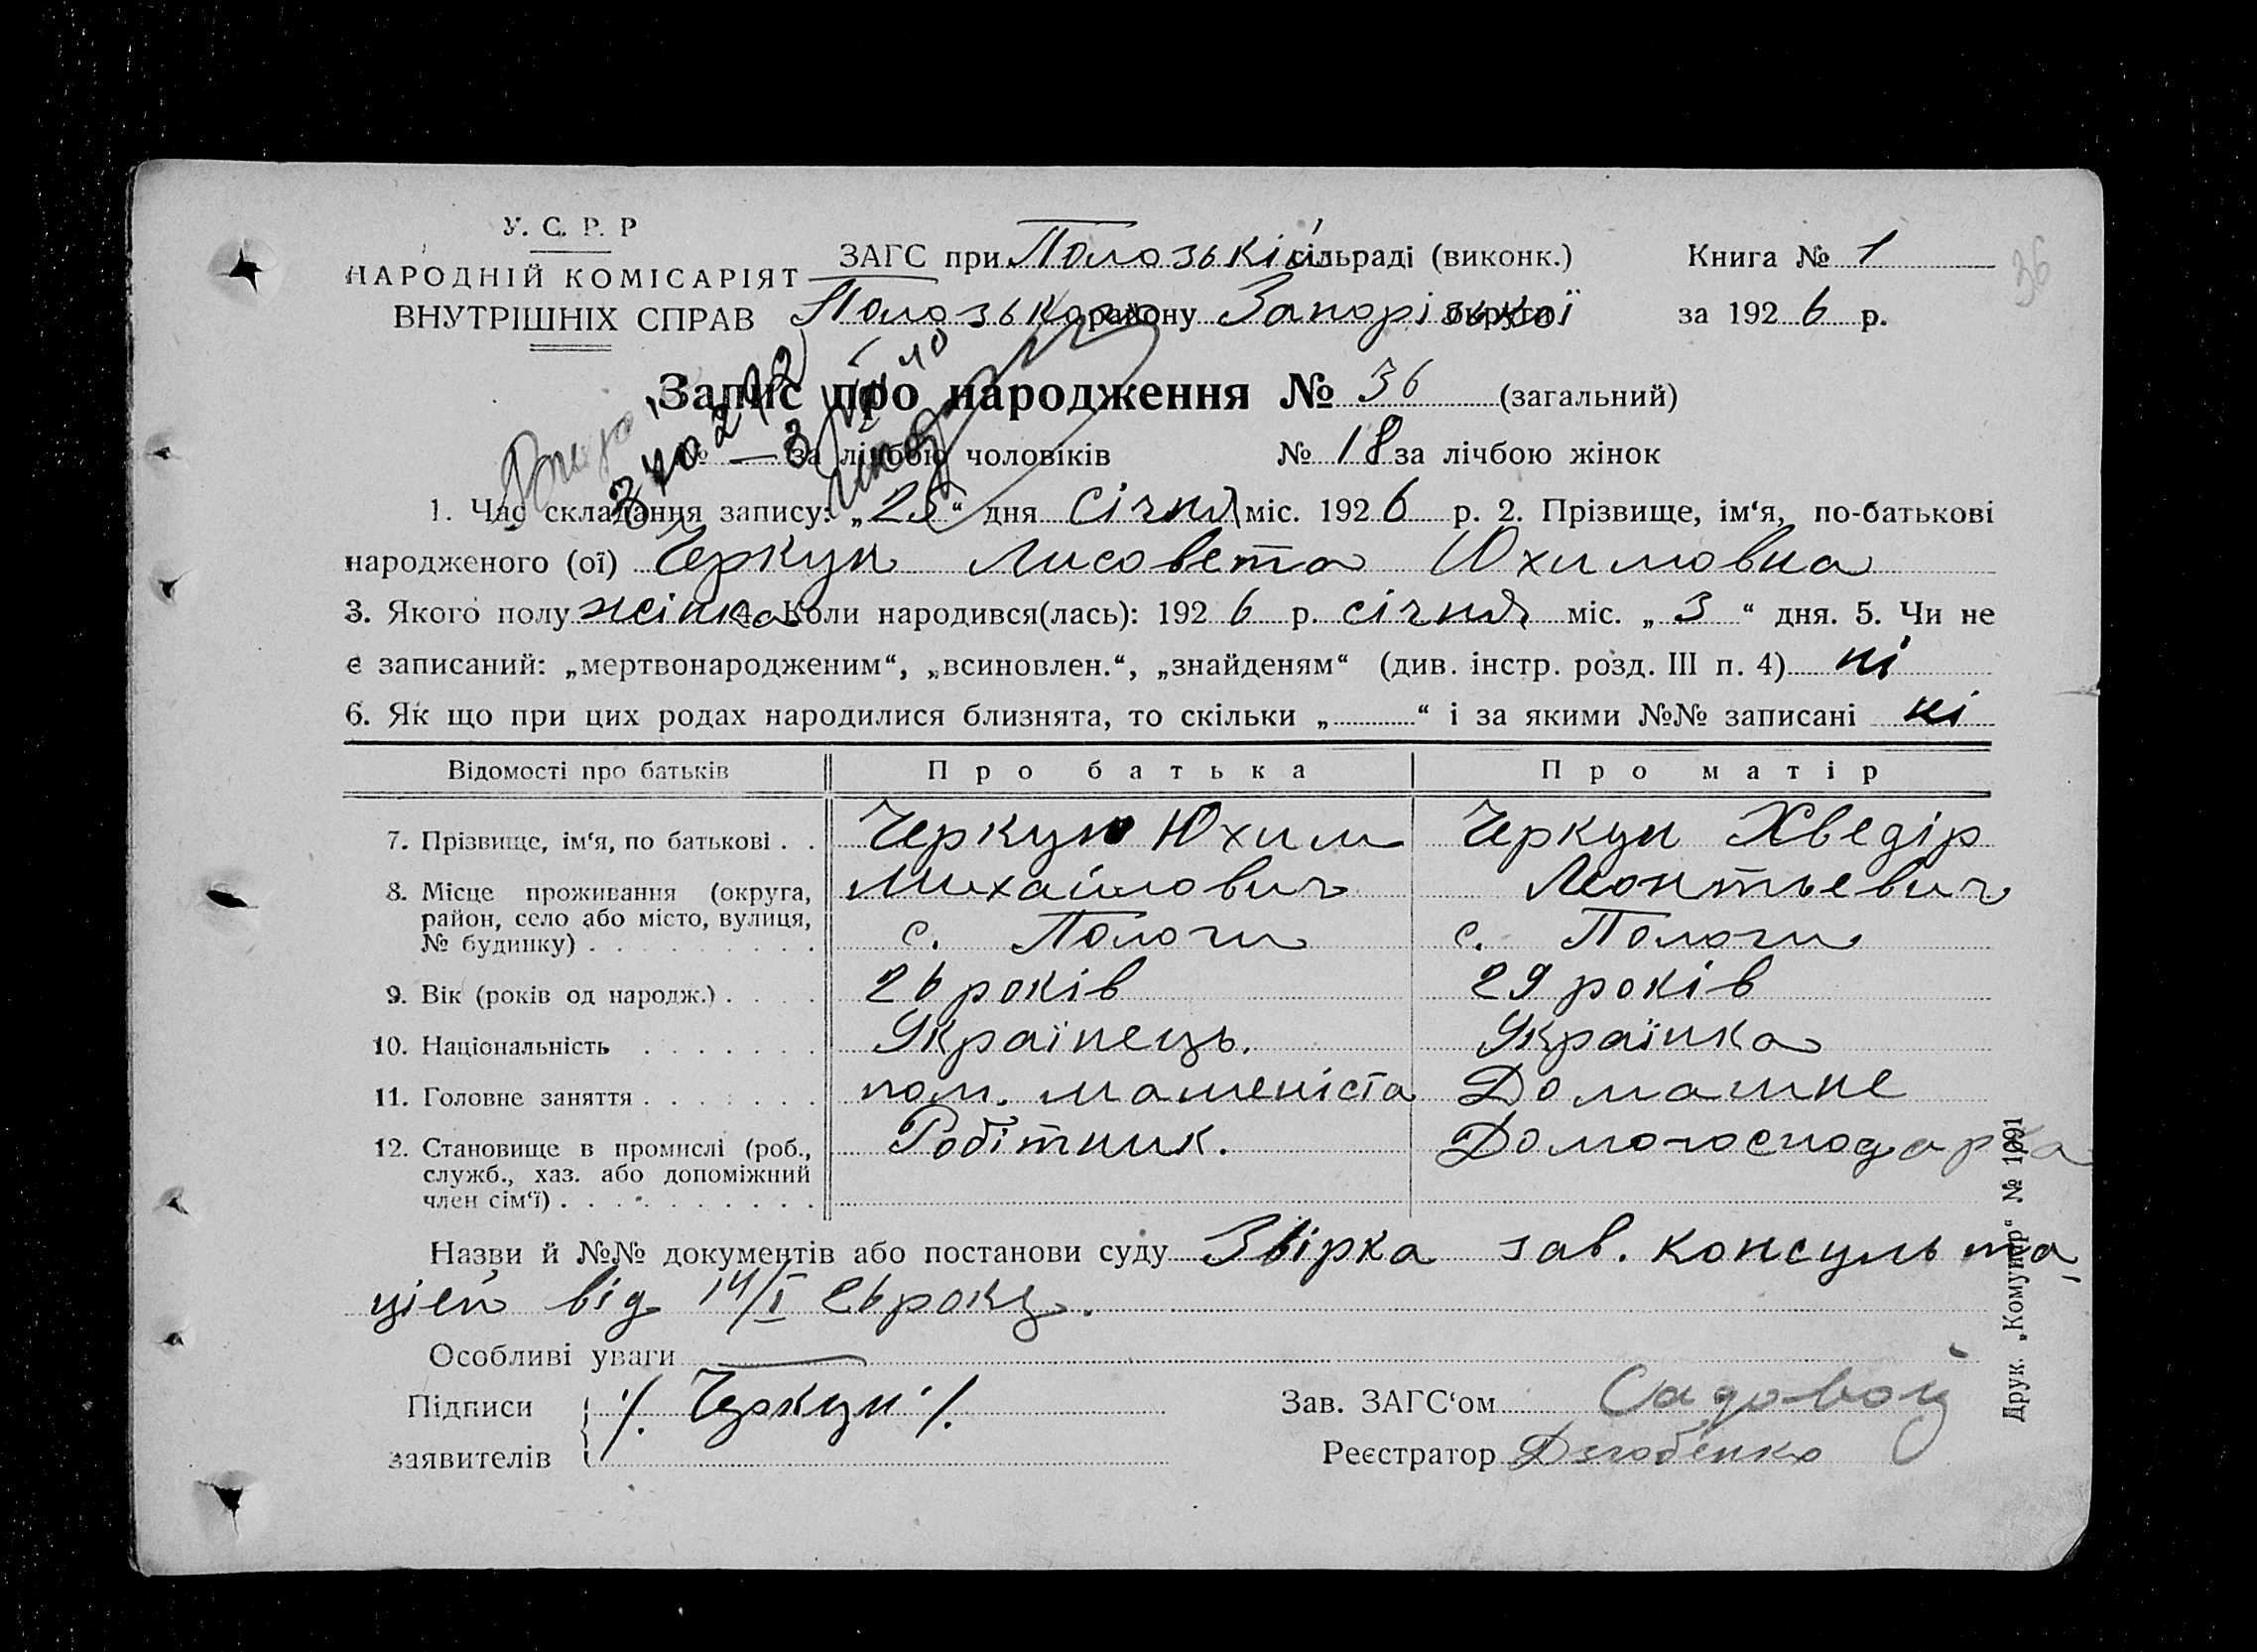 У. С. Р. Р
НАРОДНІЙ КОМІСАРІЯТ
ВНУТРІШНІХ СПРАВ
ЗАГС при Полозькій сільраді (виконк.)
Полозького району Запорізької округи
Книга № 1
за 1926 р.
36
Запис про народження № 36 (загальний)
№ — за лічбою чоловіків № 18 за лічбою жінок
1. Час складання запису: „25“ дня січня міс. 1926 р. 2. Прізвище, ім‘я, по-батькові
народженого (ої) Черкун Лисовета Юхимовна
3. Якого полу жінка 4. Коли народився(лась): 1926 р. січня міс. „3“ дня. 5. Чи не
є записаний: „мертвонародженим“, „всиновлен.“, „знайденям“ (див. інстр. розд. III п. 4) ні
6. Як що при цих родах народилися близнята, то скільки „ “ і за якими №№ записані ні
Відомості про батьків Про батька Про матір
7. Прізвище, ім‘я, по батькові . . Черкун Юхим Черкун Хведір
Михайлович Леонтьевич
8. Місце проживання (округа,
район, село або місто, вулиця,
№ будинку) . . . . . . . . с. Пологи с. Пологи
9. Вік (років од народж.) . . . . 26 років 29 років
10. Національність . . . . . . . Українець. Українка
11. Головне заняття . . . . . . . пом. машеніста Домашне
12. Становище в промислі (роб., Робітник. Домогосподарка
служб., хаз. або допоміжний
член сім‘ї) . . . . . . . . . .
Назви й №№ документів або постанови суду Звірка зав. консульта
цієй від 14/I 26 року.
Особливі уваги —
Підписи ./. Черкун ./.
заявителів
Зав. ЗАГС‘ом Садовой
Реєстратор
Друк. „Комунар“ № 1091